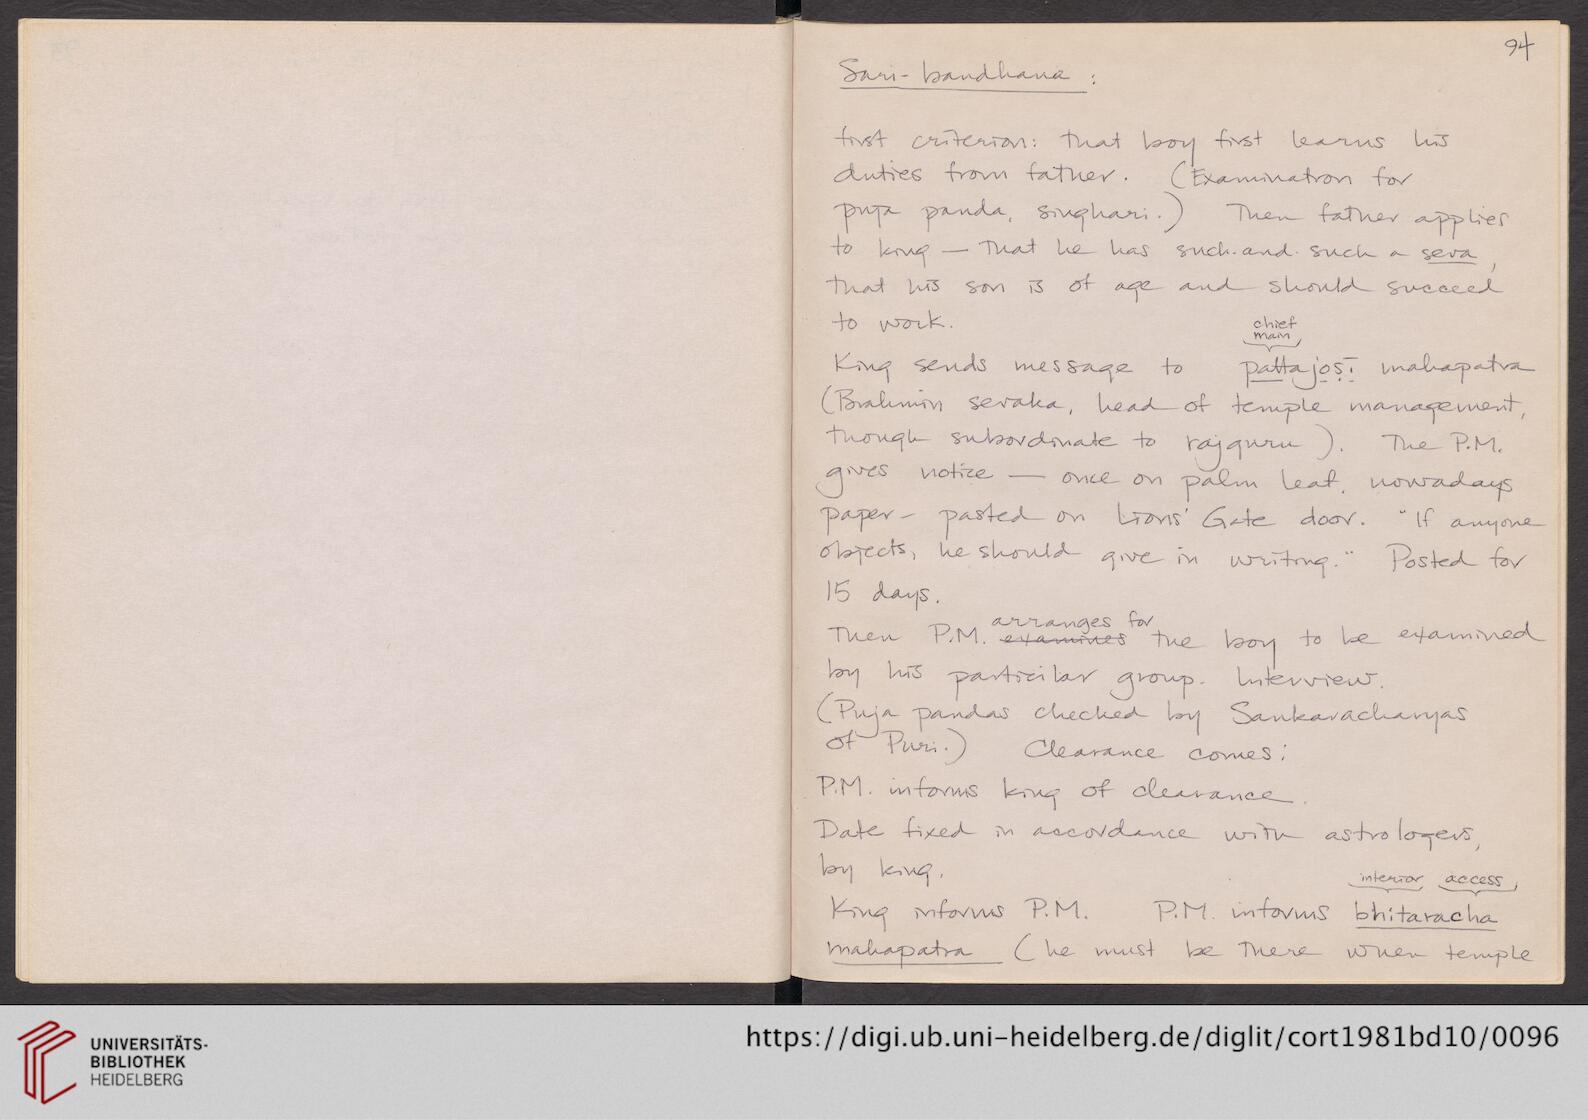 94
Sari-bandhana :
first criterion: that boy first learns his
duties from father. (Examination for
puja panda, singhari.) Then father applies
to king — that he has such-and-such a seva,
that his son is of age and should succeed
to work.
chief
main
King sends message to paṭṭajoṣī mahapatra
(Brahmin sevaka, head of temple management,
though subordinate to rajguru). The P.M.
gives notice — once on palm leaf, nowadays
paper - pasted on Lions' Gate door. "If anyone
objects, he should give in writing." Posted for
15 days.
arranges for
Then P.M. examines the boy to be examined
by his particilar group. Interview.
(Puja pandas checked by Sankaracharyas
of Puri.) Clearance comes;
P.M. informs king of clearance.
Date fixed in accordance with astrologers,
by king.
interior access
King informs P.M. P.M. informs bhitaracha
mahapatra (he must be there when temple
UNIVERSITÄTS-
BIBLIOTHEK
HEIDELBERG
https://digi.ub.uni-heidelberg.de/diglit/cort1981bd10/0096